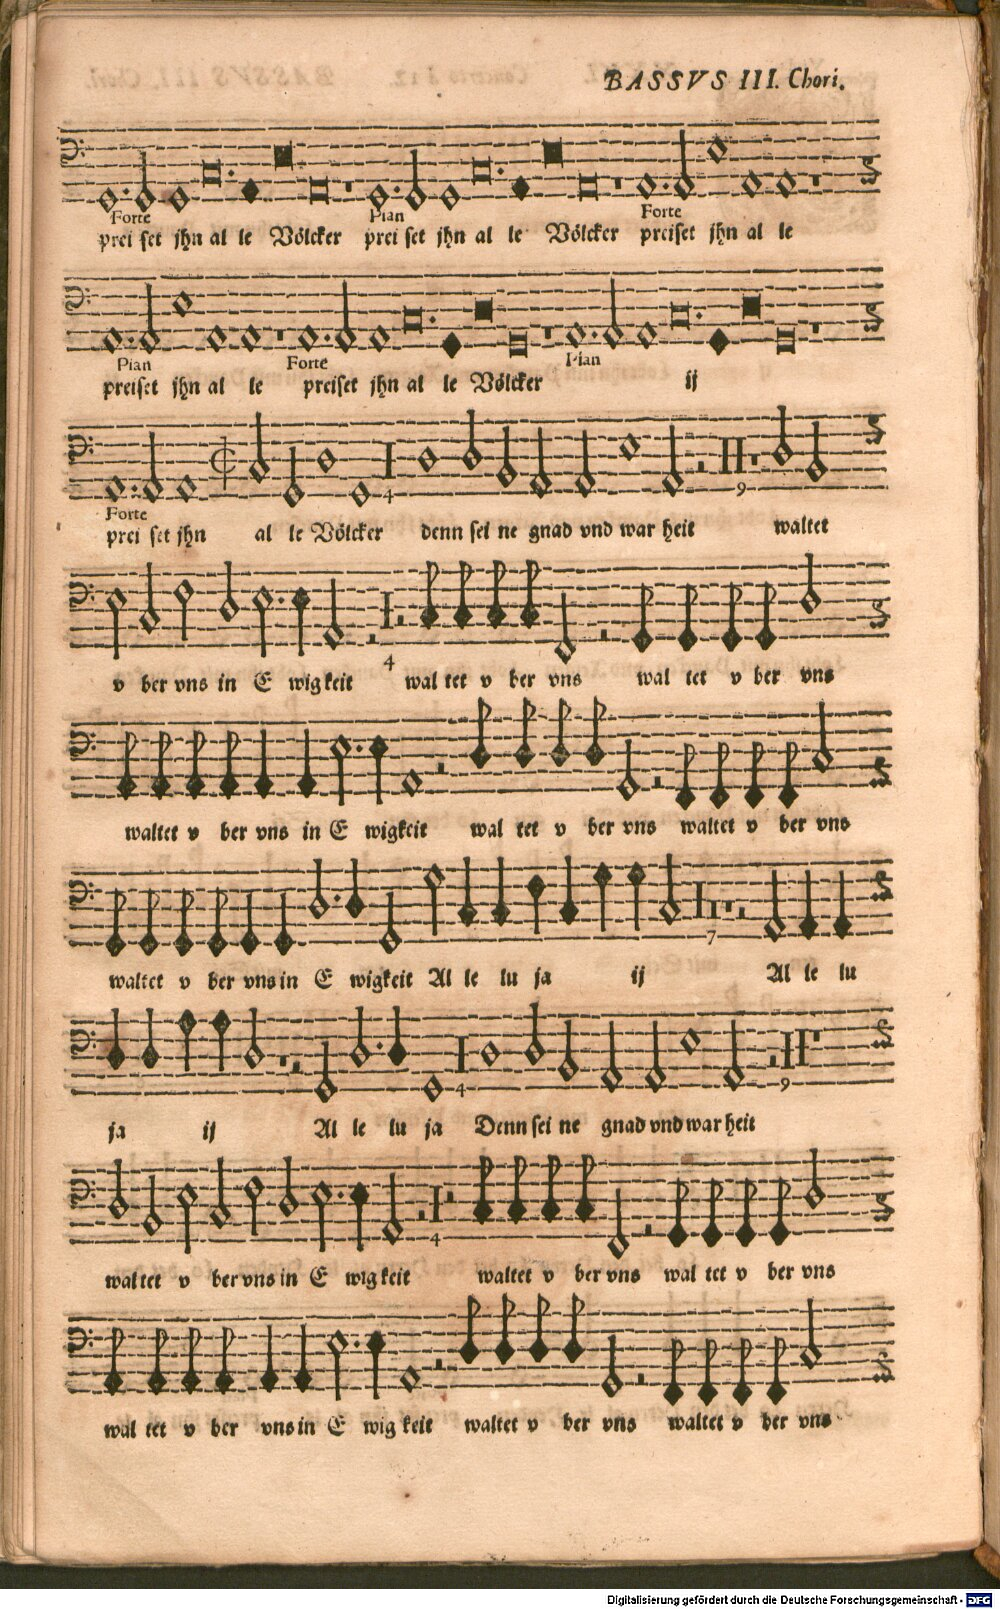 BASSVS III. Chori.
Forte Pian Forte
prei set jhn al le Völcker prei set jhn al le Völcker preiset jhn al le
Pian Forte Pian
preiset jhn al le preiset jhn al le Völcker ij
4 9
Forte
prei set jhn al le Völcker denn sei ne gnad vnd war heit waltet
4
v ber vns in E wigkeit wal tet v ber vns wal tet v ber vns
waltet v ber vns in E wigkeit wal tet v ber vns waltet v ber vns
7
waltet v ber vns in E wigkeit Al le lu ja ij Al le lu
4 9
ja ij Al le lu ja Denn sei ne gnad vnd war heit
4
wal tet v ber vns in E wig keit waltet v ber vns wal tet v ber vns
wal tet v ber vns in E wig keit waltet v ber vns waltet v ber vns
Digitalisierung gefördert durch die Deutsche Forschungsgemeinschaft - DFG